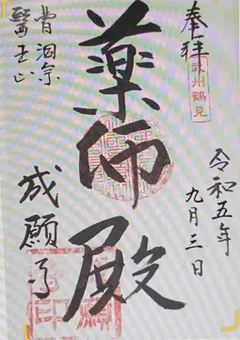 奉拝
武州鶴見
令和五年
九月三日
薬師殿
曹洞宗
医王山
成願寺